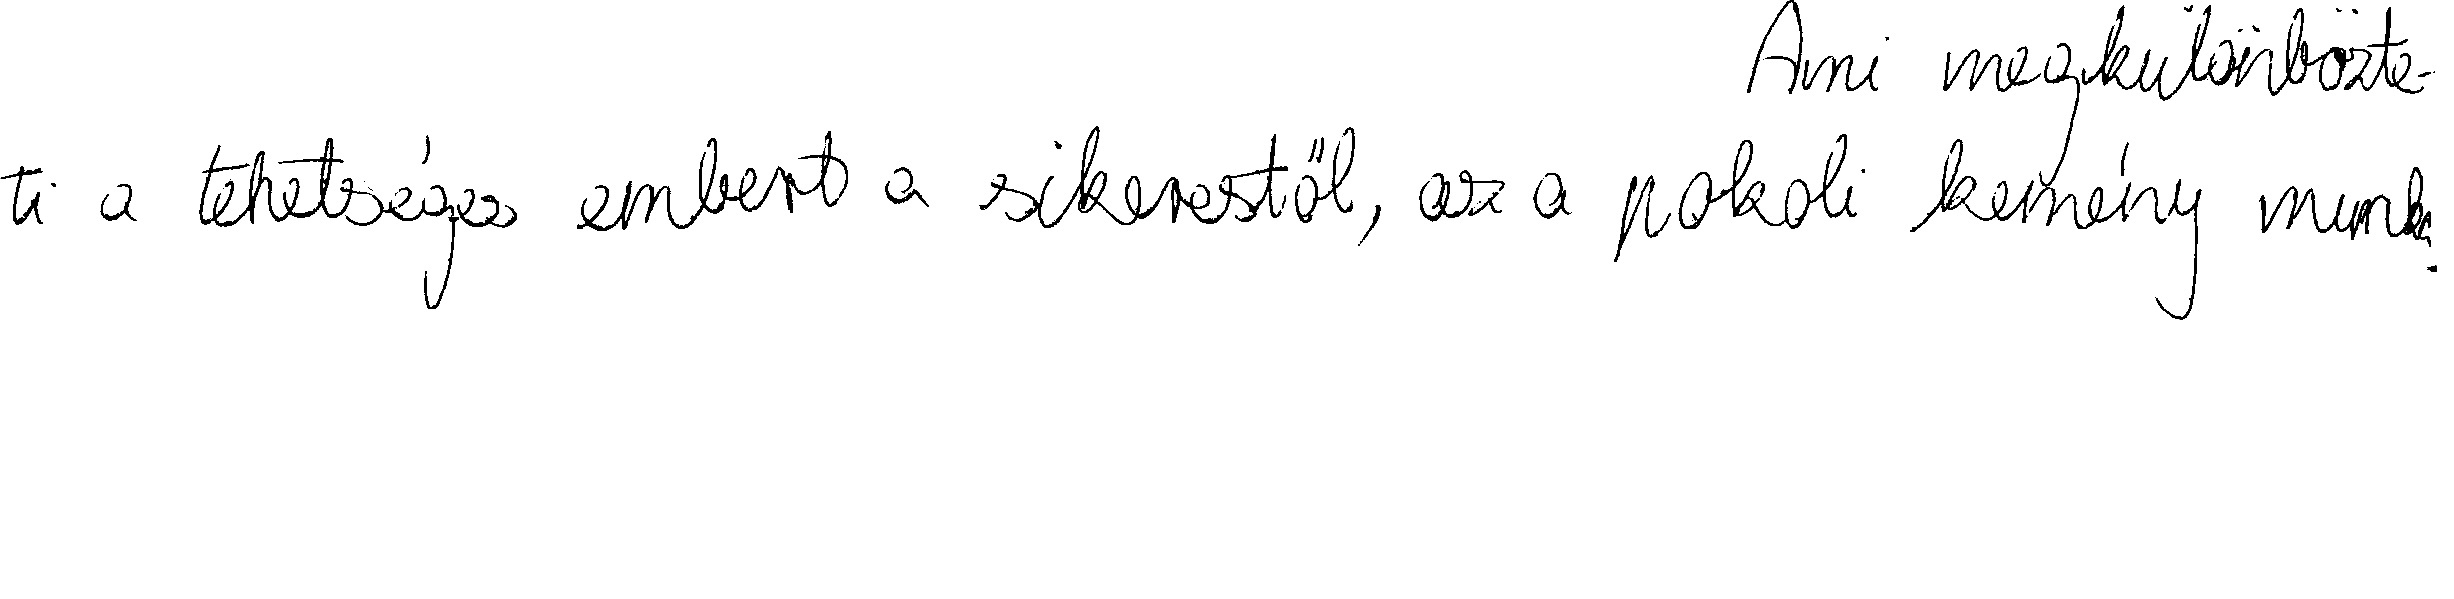 Ami megkülönbözte-
ti a tehetséges embert a sikerestől, az a pokoli kemény munka.